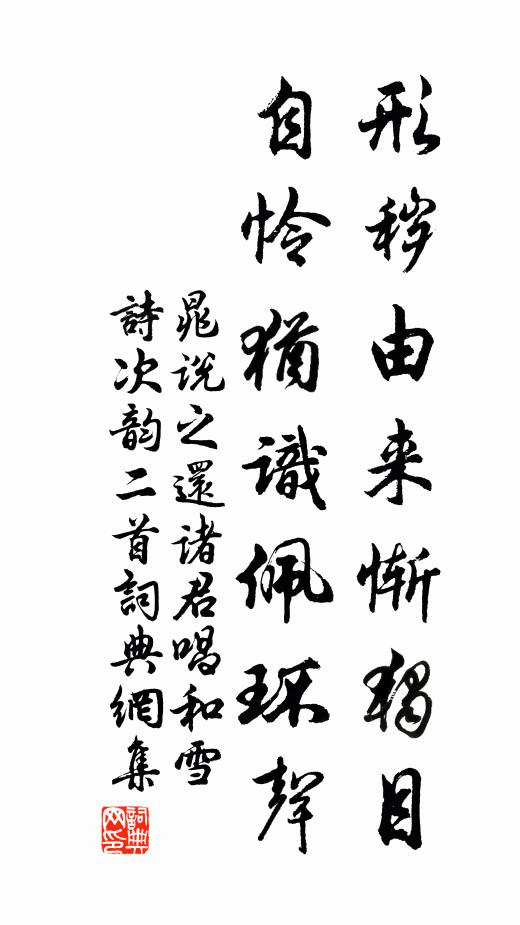 形秽由来惭獨目
自怜猶識佩环聲
晁说之還諸君唱和雪
詩次韵二首詞典網集
詞典网印